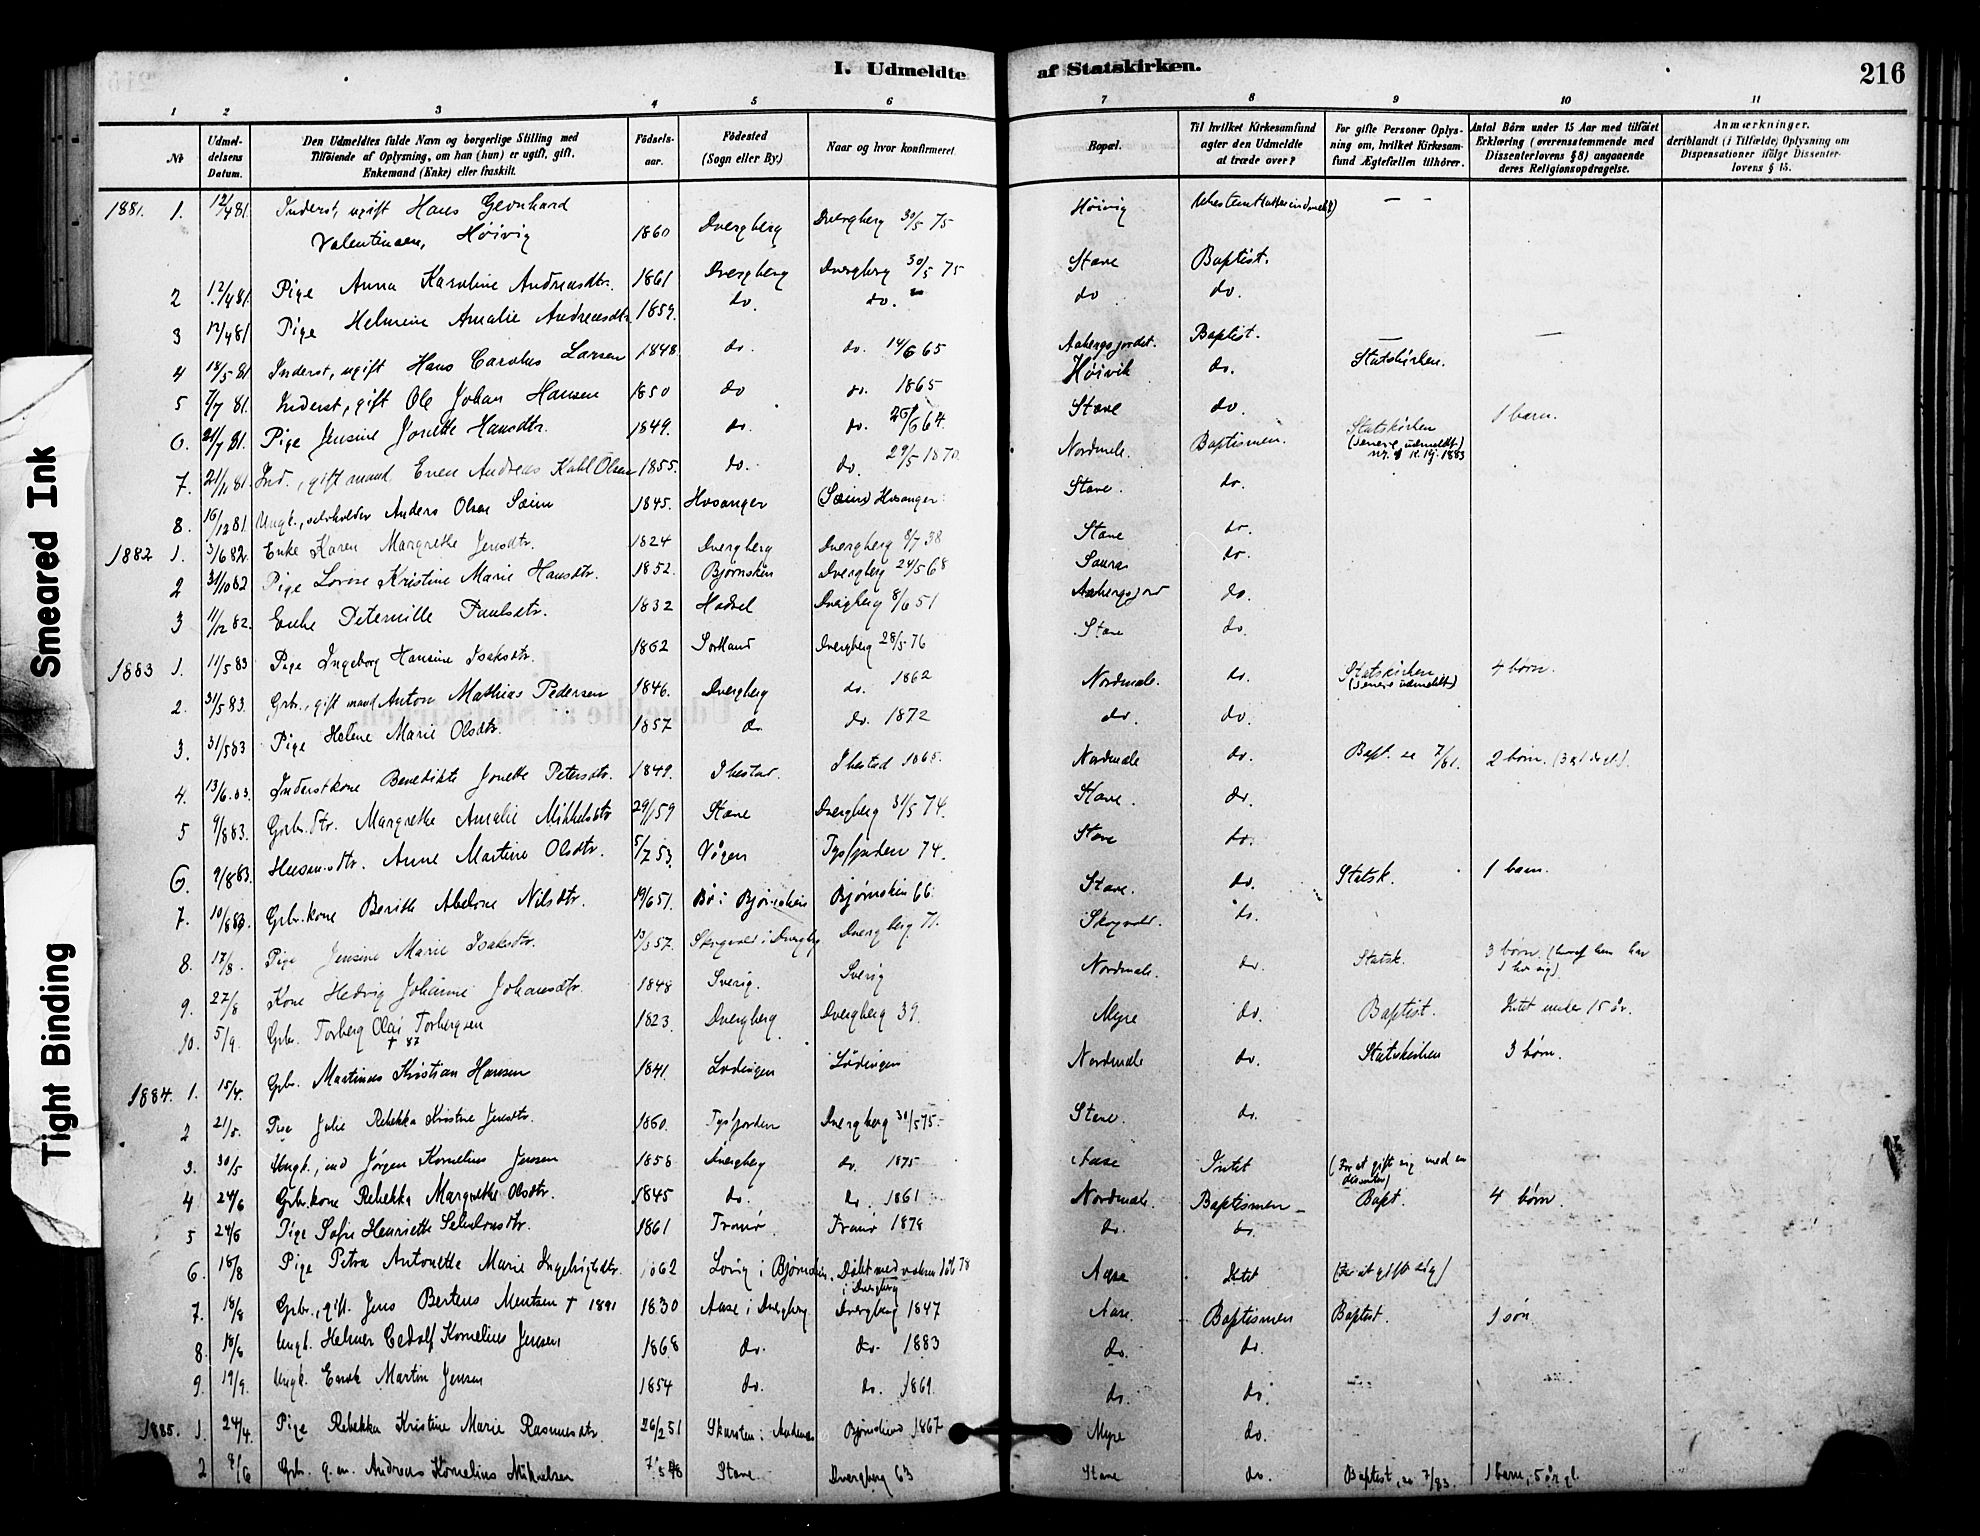 I. Udmeldte af Statskirken.
216
1 2 3 4 5 6 7 8 9 10 11
No
Udmeldelsens Datum.
Den Udmeldtes fulde Navn og borgerlige Stilling med
Tilföiende af Oplysning, om han (hun) er ugift, gift.
Enkemand (Enke) eller fraskilt.
Födselsaar.
Födested
(Sogn eller By.)
Naar og hvor konfirmeret.
Bopæl.
Til hvilket Kirkesamfund
agter den Udmeldte
at træde over?
For gifte Personer Oplys-
ning om, hvilket Kirkesam-
fund Ægtefællen tilhörer.
Antal Börn under 15 Aar med tilföiet
Erklæring (overensstemmende med
Dissenterlovens § 8) angaaende
deres Religionsopdragelse.
Anmærkninger.
deriblandt (i Tilfælde) Oplysning om
Dispensationer ifölge Dissenter-
lovens § 15.
1881. 1. 12/4 81. Inderst, ugift Hans
Valentinsen, Höivig 1860 Dvergberg Dvergberg 30/5 75 Höivig
2 12/4 81. Pige Anna Karoline Andreasdtr. 1861 Dvergberg Dvergberg 30/5 75 Stave Baptist.
3 12/4 81 Pige Helmine Amalie Andreasdtr. 1859. do. do. do do.
4 Inderst, ugift Hans Carolus Larsen 1848. do. do. 14/6 65 Baptist.
5 7/7 81. Inderst, gift Ole Johan Hansen 1850 do do. 1865 Höivik do. Statskirken.
6. 21/7 81. Pige Jensine Jonette Hansdtr. 1849. do. do. Stave do. 1 barn.
7. 21/11 81. Ind., gift mand Even Andreas Olsen 1855. do. do. 29/5 1870. Nordmele. Baptismen. Statskirken
(senere udmeldt)
8. 16/12 81. Ungk., Anders Olsen Sæim 1845. Hosanger (Sæim) Hosanger. Stave. do.
1882 1. 3/6 82. Enke Karen Margrethe Jensdtr. 1824 Dvergberg Dvergberg 8/7 38 Stave do.
2 31/10 82 Pige Lovise Kristine Marie Hansdtr. 1852. Bjørnskin Dvergberg 24/5 68 Saura do.
3 11/12 82. Enke Peternille Paulsdtr. 1832 Hadsel Dvergberg 8/6 51 do.
1883 1. 11/5 83 Pige Ingeborg Hansine Isaksdtr. 1862 Sortland Dvergberg 28/5 76 Stave do.
2. 31/5 83. Grbr., gift mand Anton Mathias Pedersen 1846. Dvergberg do. 1862 Nordmele. do. Statskirken
(senere udmeldt) 4 børn.
3. 31/5 83 Pige Helene Marie Olsdtr. 1857 do. do. 1872 do. do.
4. 13/6 83. Inderstkone Benedikte Jonette Petersdtr. 1849. Ibestad. Ibestad 1865. Nordmele do. Bapt. 2 børn.
5 9/8 83. Grbr.dtr. Margrethe Amalie Mikkelsdtr 29/1 59 Stave Dvergberg 31/5 74. Stave. do.
6. 9/8 83. Husm.dtr. Anne Martine Olsdtr. 5/7 53. Vågen Tysfjorden 74. Stave do.
7. 10/8 83. Grbr.kone Berithe Abelone Nilsdtr. 19/6 51. Bø i Bjørnskin Bjørnskin 66. Stave. do. Statsk. 1 barn.
8. 17/8. Pige Jensine Marie Isaksdtr. 13/3 57. Skogvold i Dvergbg Dvergberg 71. Skogvold. do.
9. 27/8 Kone Hedvig Johanne Johansdtr. 1848 Sverig. Sverig Nordmele. do. Statsk. 3 børn
10. 5/9. Grbr. Torberg Olai Torbergsen
† 87 1823. Dvergberg. Dvergberg 39. Myre do. Baptist. Intet under 15 år.
1884. 1. 15/4. Grbr. Martinus Kristian Hansen 1841. Lødingen Lødingen Nordmele do. Statskirken 3 børn.
2 21/5. Pige Julie Rebekka Kristine Jensdtr. 1860. Tysfjorden Dvergberg 30/5 75. Stave. do.
3. 30/5 Ungk., ind Jørgen Kornelius Jensen 1858 Dvergberg do. 1875 Aase Intet (For at gift sig med en
dissenter)
4 24/6 Grbr.kone Rebekka Margrethe Olsdtr. 1845 do. do. 1861 Nordmele. Baptismen Bapt. 4 børn
5 24/6 Pige Sofie Henriette 1861 Tromsø Tromsø 1878 do. do.
6. 18/8 Pige Petra Antonette Marie Ingebrigtsdtr. 1862 i Bjørnskin. Døbt med
i Dvergberg Aase Intet (For at gifte sig)
7. 18/8 Grbr., gift. Jens Bertens Mentsen † 1891 1830 Aase i Dvergberg Dvergberg 1847 Aase. Baptismen Baptist. 1 søn.
8. 18/8 Ungk. Helmer Kornelius Jensen 1868 do. do. 1883 do. do.
9. 19/9. Ungk. Martin Jensen 1854 do. do. 1869. do. do.
1885. 1. 24/4. Pige Rebekka Kristine Marie Rasmusdtr. 26/2 51 Skarsten i Andenes Bjørnskind 1867 Myre do.
2 Grbr. g. m. Andreas Kornelius Mikkelsen Stave Dvergberg 63 Stave do. Baptist, 7/83. 1 barn, 5 år gl.
Smeared Ink
Tight Binding